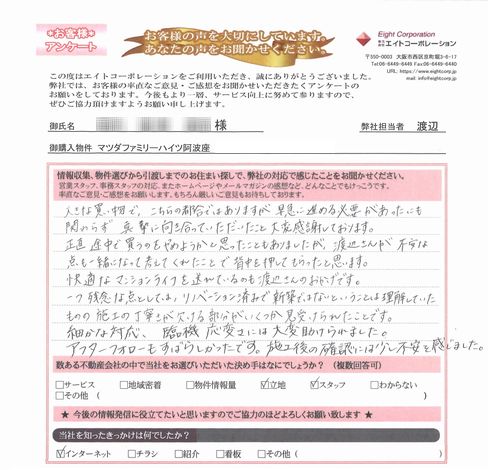 *お客様*
アンケート
お客様の声を大切にしています。
あなたの声をお聞かせください。
Eight Corporation
株式会社エイトコーポレーション
〒550-0003 大阪市西区京町堀3-6-17
Tel:06-6449-6481 Fax:06-6449-6480
URL: https://www.eightcorp.jp
mail: info@eightcorp.jp
この度はエイトコーポレーションをご利用いただき、誠にありがとうございました。
弊社では、お客様の率直なご意見・ご感想をお聞かせいただきたくアンケートの
お願いをしております。今後もより一層、サービス向上に努めて参りますので、
ぜひご協力頂けますようお願い申し上げます。
御氏名 様 弊社担当者 渡辺
御購入物件 マツダファミリーハイツ阿波座
情報収集、物件選びから引渡しまでのお住まい探しで、弊社の対応で感じたことをお聞かせください。
営業スタッフ、事務スタッフの対応、またホームページやメールマガジンの感想など、どんなことでもけっこうです。
率直なご意見・ご感想をお願いいたします。もちろん厳しいご意見もお待ちしております。
大きな買い物で、こちらの都合ではありますが早急に進める必要があったにも
関わらず、真摯に向き合っていただいたこと大変感謝しております。
正直途中で買うのをやめようかと思ったこともありましたが、渡辺さんが不安な
点も一緒になって考えてくれたことで背中を押してもらったと思います。
快適なマンションライフを送れているのも渡辺さんのおかげです。
一つ残念な点としては、リノベーション済みで新築ではないということは理解していた
ものの施工の丁寧さが欠ける部分がいくつか見受けられたことです。
細かな対応、臨機応変さには大変助けられました。
アフターフォローもすばらしかったです。施工後の確認には少し不安を感じました。
数ある不動産会社の中で当社をお選びいただいた決め手はなにでしょうか？（複数回答可）
□サービス □地域密着 □物件情報量 ☑立地 ☑スタッフ □わからない
□その他（ ）
★ 今後の情報発信に役立てたいと思いますのでご協力のほどよろしくお願い致します ★
当社を知ったきっかけは何でしたか？
☑インターネット □チラシ □紹介 □看板 □その他（ ）